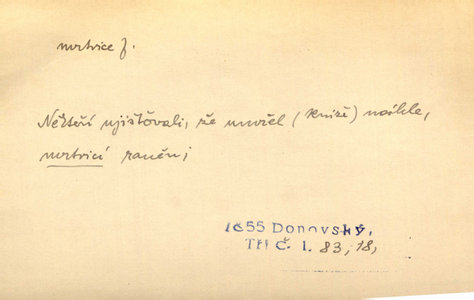 mrtvice f.
Někteří ujišťovali, že umřel (kníže) náhle,
mrtvicí raněn;
1855 Donovský,
TH Č. I. 83, 18,